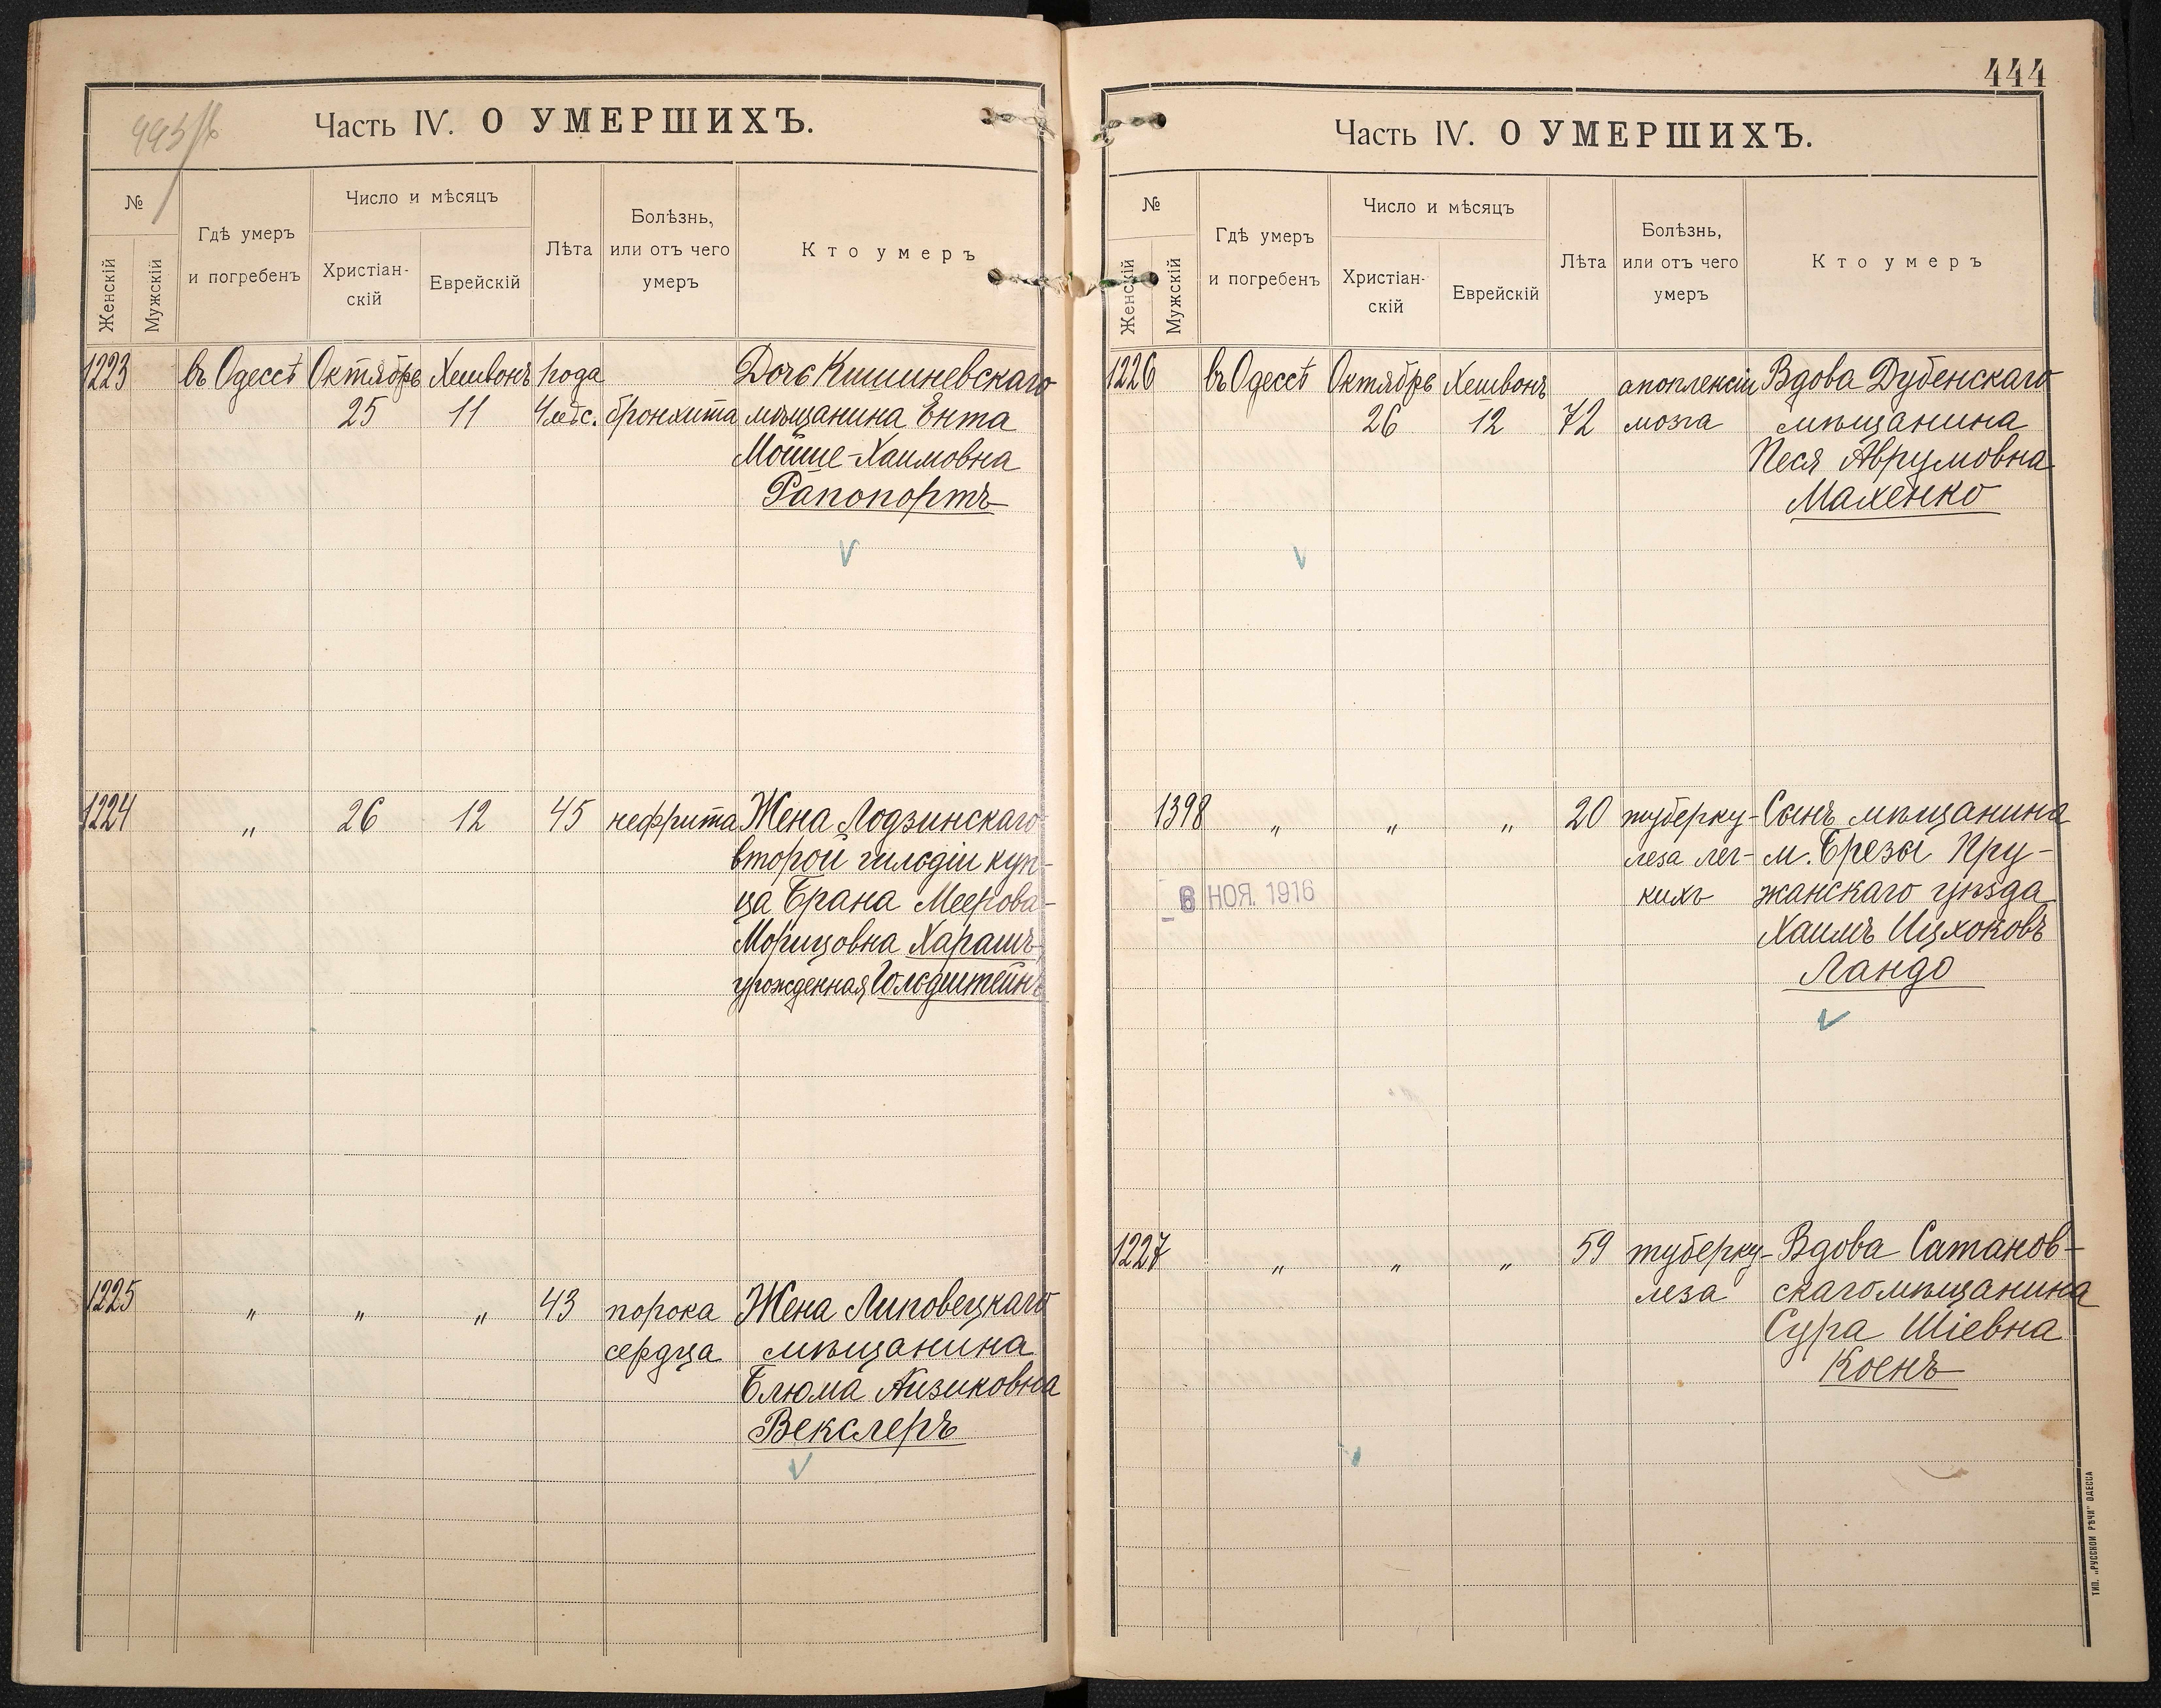 Часть IV. О УМЕРШИХЪ.
№
Женскій
Мужскій
Гдѣ умеръ
и погребенъ
Число и мѣсяцъ
Христіан-
скій
Еврейскій
Лѣта
Болѣзнь,
или отъ чего
умеръ
Кто умеръ
1223 въ Одессѣ Октябрь Хешвонъ 1года Дочь Кишиневскаго
25 11 4мѣс. бронхита мѣщанина Ента
Мойше-Хаимовна
Рапопортъ
1224 „ 26 12 45 нефрита Жена Лодзинскаго
второй гильдіи куп-
ца Брана Меерова-
Морицовна Харашъ,
урожденная Гольдштейнъ
1225 „ „ „ 43 порока Жена Липовецкаго
сердца мѣщанина
Блюма Айзиковна
Векслеръ
444
Часть IV. О УМЕРШИХЪ.
№
Женскій
Мужскій
Гдѣ умеръ
и погребенъ
Число и мѣсяцъ
Христіан-
скій
Еврейскій
Лѣта
Болѣзнь,
или отъ чего
умеръ
Кто умеръ
1226 въ Одессѣ Октябрь Хешвонъ апоплексіи Вдова Дубенскаго
26 12 72 мозга мѣщанина
Песя Аврумовна
Махенко
1398 „ „ „ 20 туберку- Сынъ мѣщанина
леза лег- м. Брезы Пру-
кихъ жанскаго уѣзда
6 НОЯ. 1916
Хаимъ Ицхоковъ
Ландо
1227 „ „ „ 59 туберку- Вдова Сатанов-
леза скаго мѣщанина
Сура Шіевна
Коенъ
ТИП. „РУССКОЙ РѢЧИ" ОДЕССА